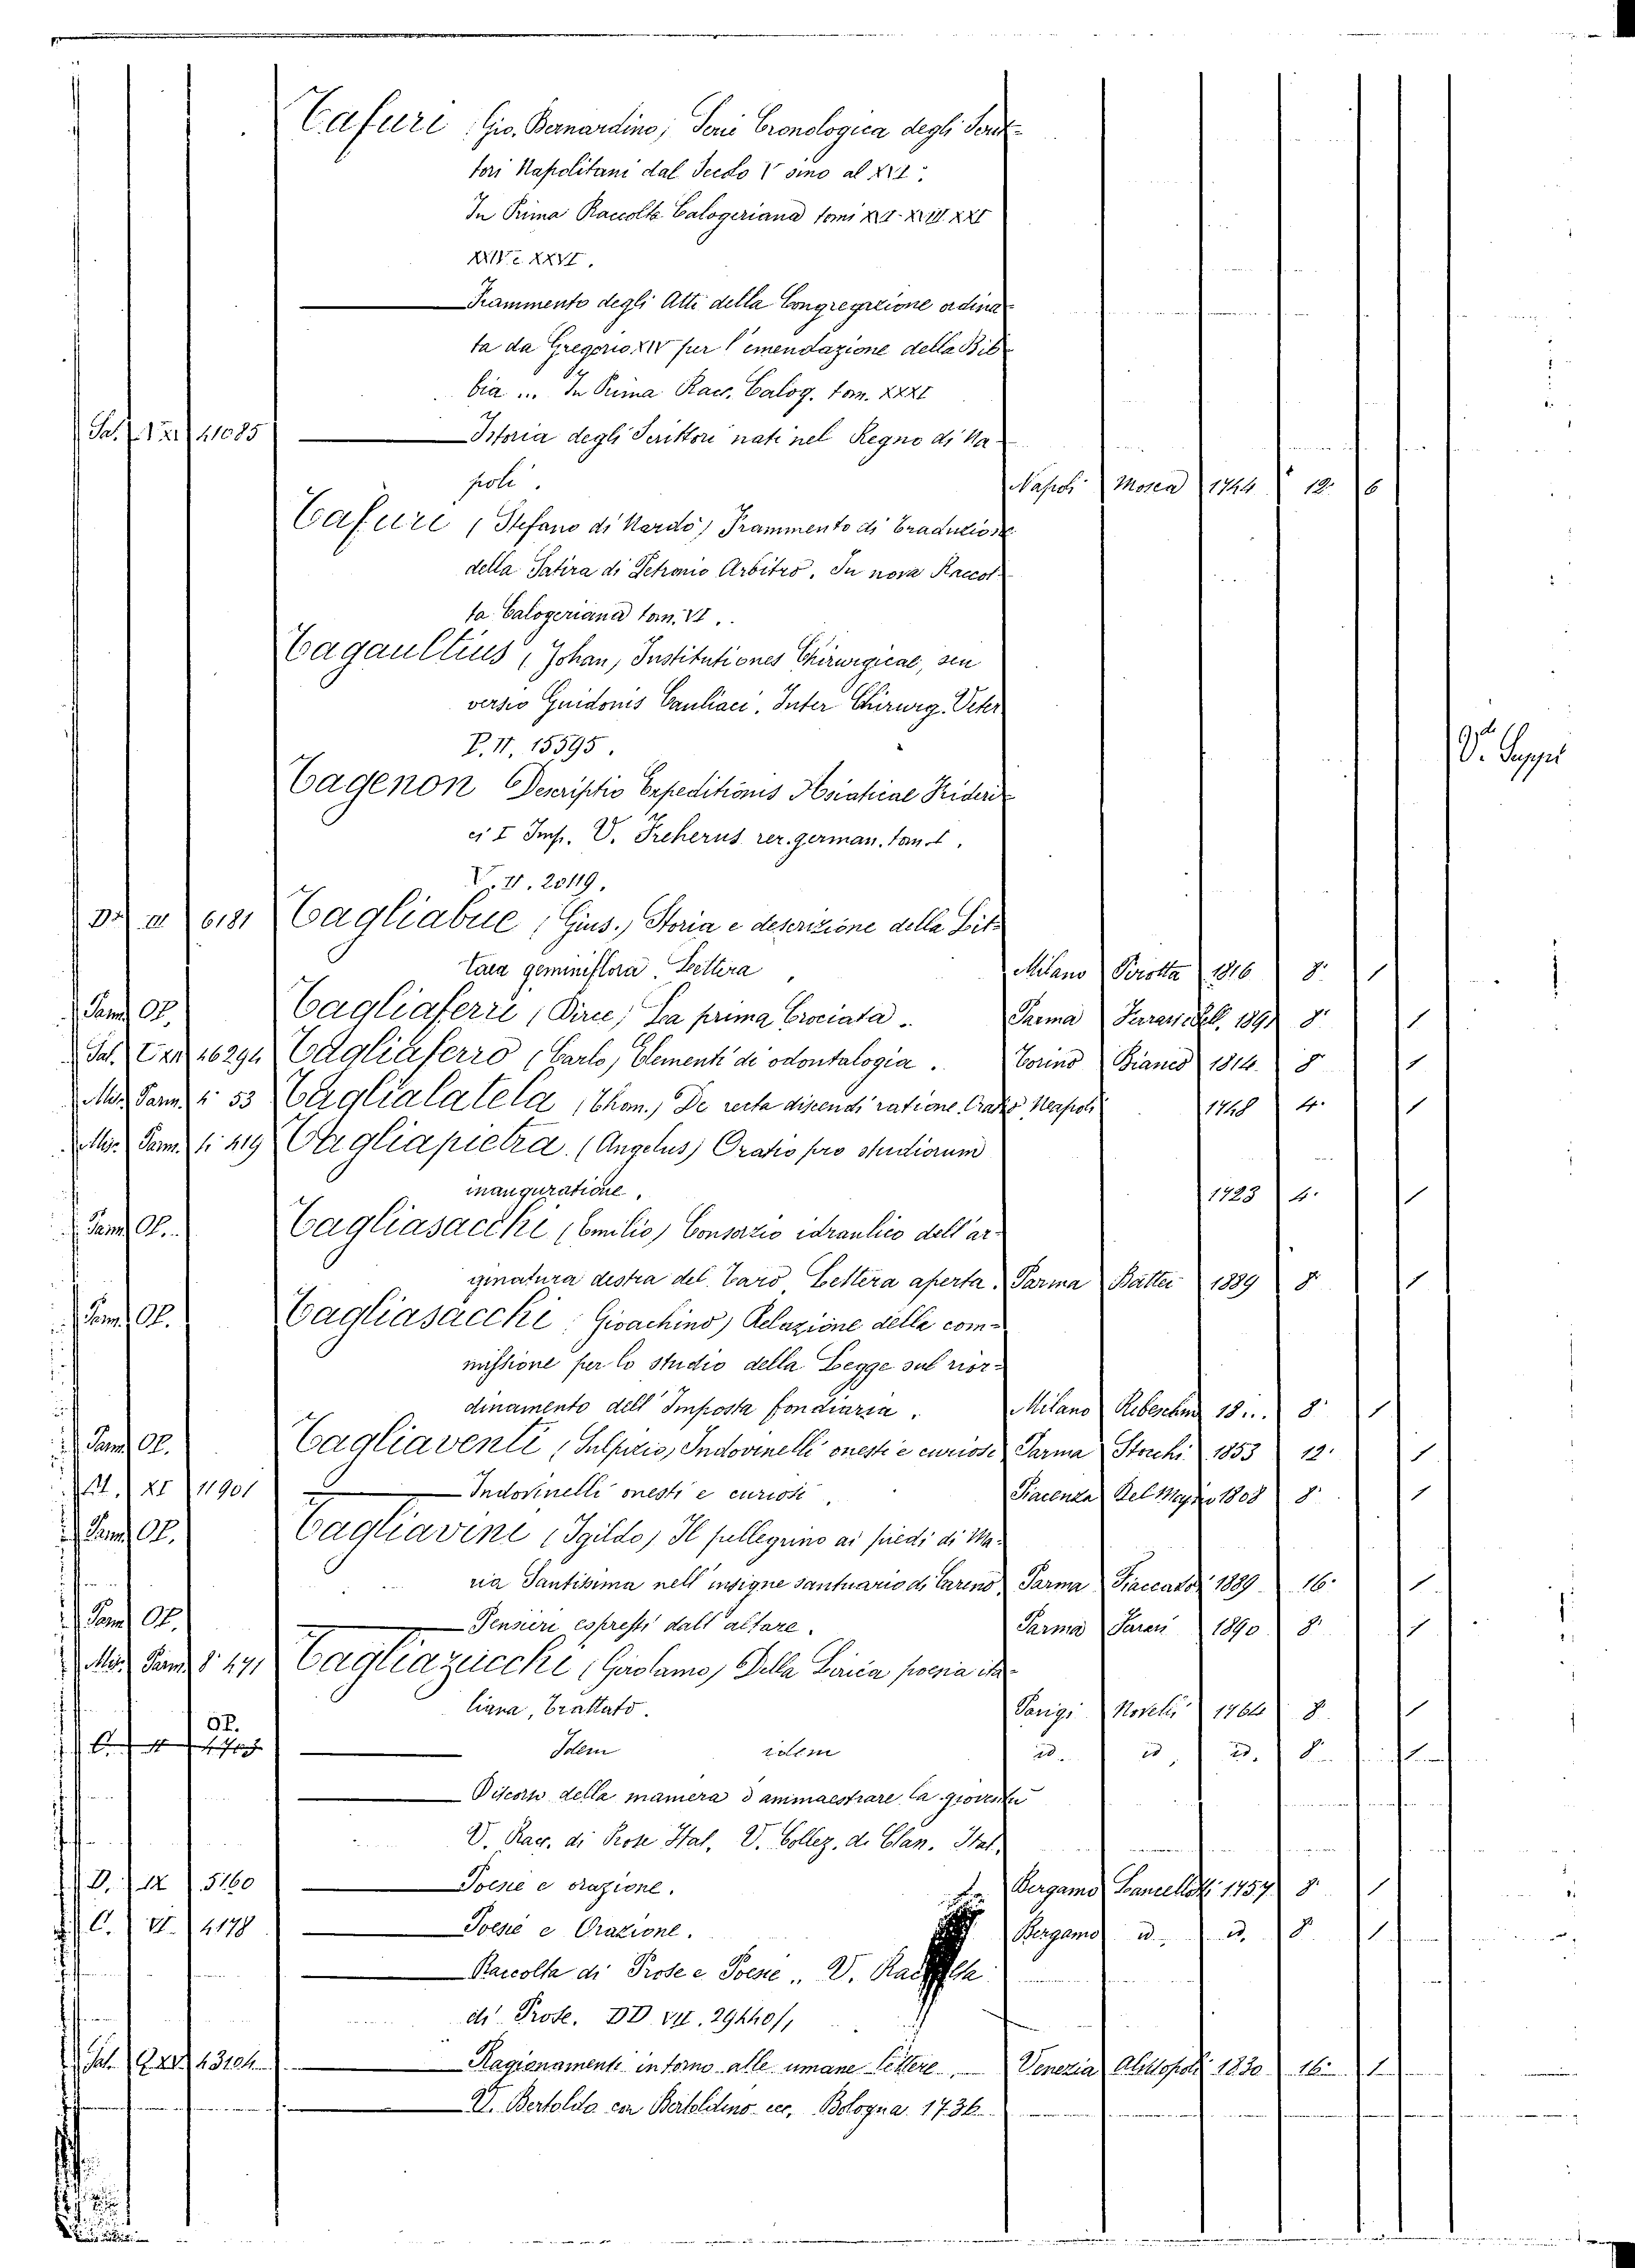 Tafuri (Gio. Bernardino) Serie Cronologica degli Scrit-
tori Napolitani dal Secolo V sino al XVI.
In Prima Raccolta Calogeriana tomi XVI. XVIII XXI
XXIV e XXVI.
— Frammento degli Atti della Congregazione ordina-
ta da Gregorio XIV per l'emendazione della Bib-
bia ... In Prima Racc. Calog. tom. XXXI
Sal. 41085 — Istoria degli Scrittori nati nel Regno di Na-
poli. Napoli Mosca 1744 12. 6
Tafuri (Stefano di Nardò) Frammento di traduzione
della Satira di Petronio Arbitro. In nova Raccol-
ta Calogeriana tom. VI.
Tagaultius (Johan) Institutiones Chirurgicae, seu
versio Guidonis Cauliaci. Inter Chirurg. Veter
P. II. 15595.
V. Suppl
Tagenon Descriptio Expeditionis Asiaticae Frideri-
ci I Imp. V. Freherus rer. german. tom. I.
V. II. 20119.
DD III 6181 Tagliabue (Gius.) Storia e descrizione della Lit-
taea geminiflora. Lettera Milano Pirotta 1816 8. 1
Parm. Op. Tagliaferri (Dirce) La prima Crociata. Parma 1891 8. 1
Sal. 46294 Tagliaferro (Carlo) Elementi di odontalogia. Torino Bianco 1814. 8 1
Misc. Parm. 4. 53 Taglialatela (Thom.) De recta discendi ratione. Oratio Neapoli 1748 4. 1
Misc. Parm. 4. 419 Tagliapietra (Angelus) Oratio pro studiorum
inauguratione. 1723 4. 1
Parm. Op. Tagliasacchi (Emilio) Consorzio idraulico dell'ar-
ginatura destra del Taro Lettera aperta. Parma Battei 1889 8. 1
Parm. Op. Tagliasacchi (Gioachino) Relazione della com-
missione per lo studio della Legge sul rior-
dinamento dell'Imposta fondiaria. Milano Rebeschini 18... 8. 1
Parm. Op. Tagliaventi (Sulpizio) Indovinelli onesti e curiosi Parma Storchi 1853 12. 1
XI 11901 — Indovinelli onesti e curiosi. Piacenza Del Majno 1808 8. 1
Parm. Op. Tagliavini (Igildo) Il pellegrino ai piedi di Ma-
ria Santissima nell'insigne santuario di Careno. Parma Fiaccadori 1889 16. 1
Parm. Op. — Pensieri espressi dall'altare. Parma 1890 8. 1
Misc. Parm. 8. 471 Tagliazucchi (Girolamo) Della Lirica poesia ita-
liana, Trattato. Parigi Novelli 1764 8. 1
OP. — Idem idem id. id. id. 8. 1
— Discorso della maniera d'ammaestrare la gioventù
V. Racc. di Prose Ital. V. Collez. di Clas. Ital.
D. IX 5160 — Poesie e orazione. Bergamo Lancellotti 1757 8. 1
C. VI. 4178 — Poesie e Orazione. Bergamo id. id. 8. 1
— Raccolta di Prose e Poesie. V. Raccolta
di Prose. DD VII. 29440/1
Sal. 43104 — Ragionamento intorno alle umane lettere. Venezia Alvisopoli 1830 16. 1
— V. Bertoldo con Bertoldino ecc. Bologna 1736